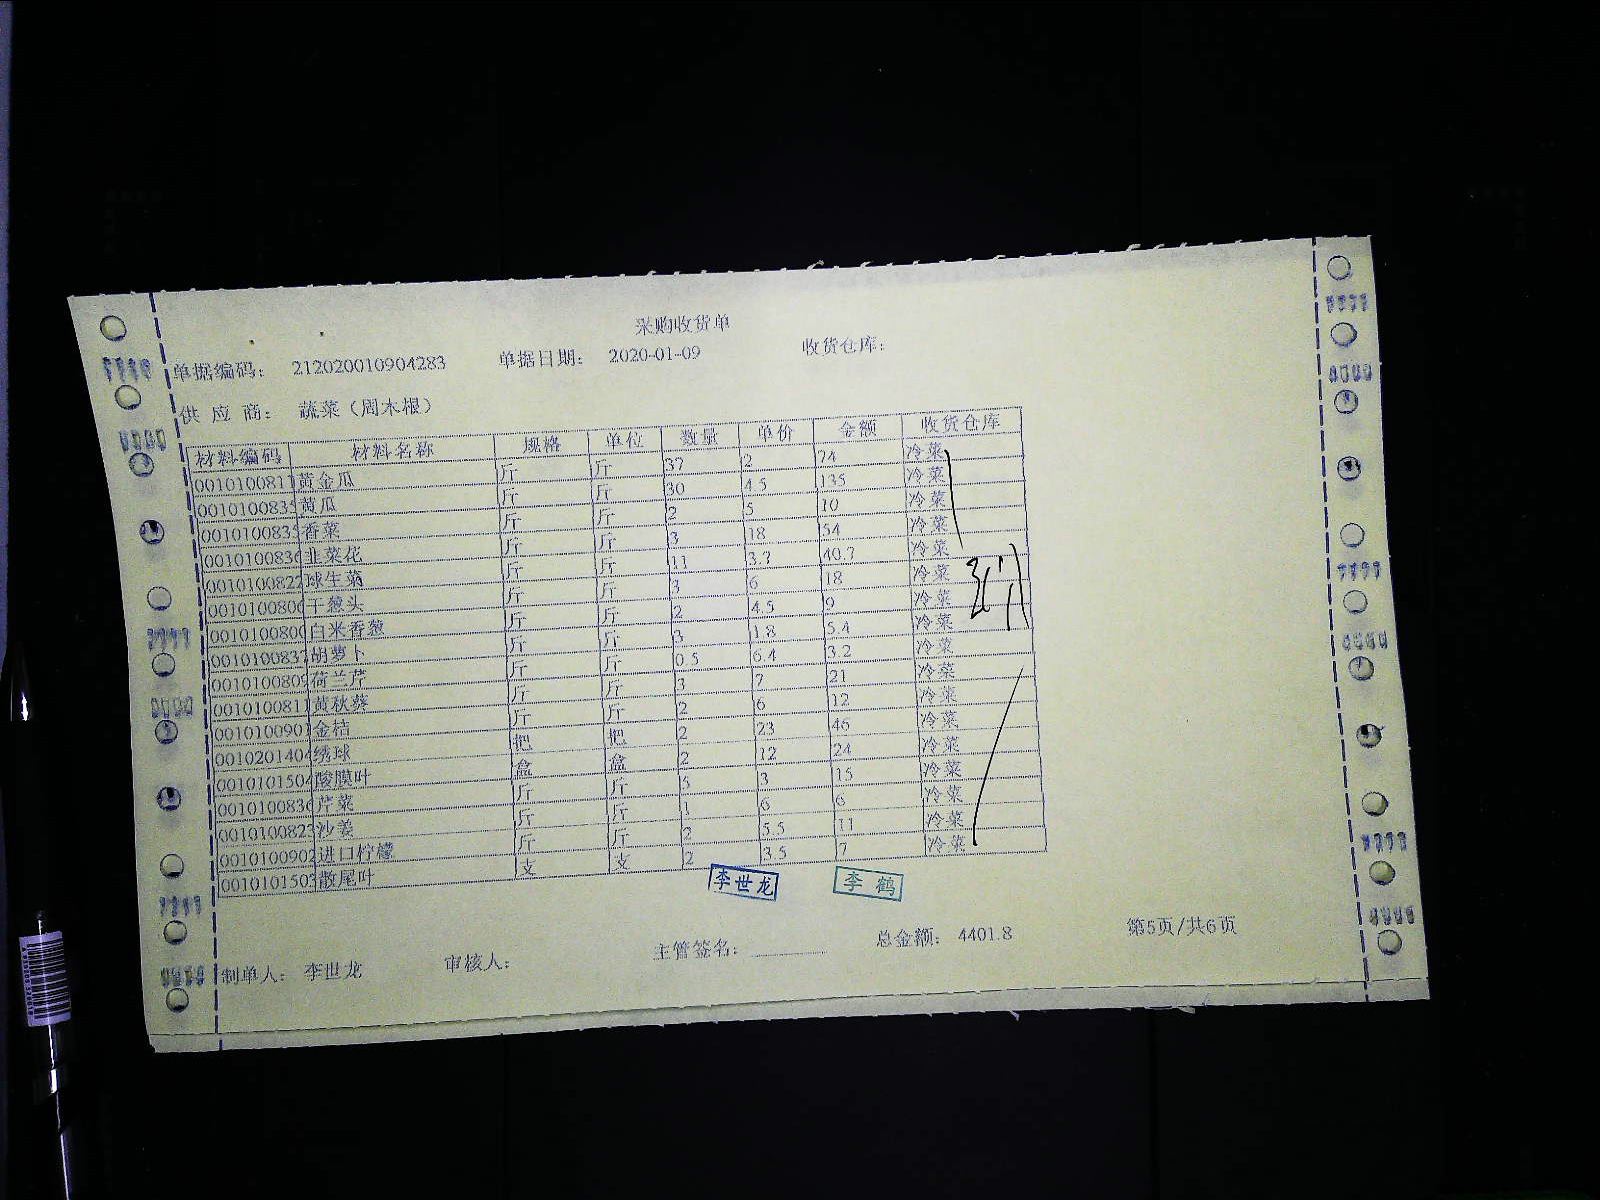 采购收货单
单据编码： 212020010904283 单据日期： 2020-01-09 收货仓库：
供应商： 蔬菜（周木根）
材料编码 材料名称 规格 单位 数量 单价 金额 收货仓库
0010100811 黄金瓜 斤 斤 37 2 74 冷菜
0010100835 黄瓜 斤 斤 30 4.5 135 冷菜
0010100835 香菜 斤 斤 2 5 10 冷菜
0010100836 韭菜花 斤 斤 3 18 54 冷菜
0010100822 球生菊 斤 斤 11 3.7 40.7 冷菜
0010100806 干葱头 斤 斤 3 6 18 冷菜
0010100800 白米香葱 斤 斤 2 4.5 9 冷菜
0010100837 胡萝卜 斤 斤 3 1.8 5.4 冷菜
0010100809 荷兰芹 斤 斤 0.5 6.4 3.2 冷菜
0010100811 黄秋葵 斤 斤 3 7 21 冷菜
0010100901 金桔 斤 斤 2 6 12 冷菜
0010201404 绣球 把 把 2 23 46 冷菜
0010101504 酸膜叶 盒 盒 2 12 24 冷菜
0010100836 芹菜 斤 斤 5 3 15 冷菜
0010100823 沙姜 斤 斤 1 6 6 冷菜
0010100902 进口柠檬 斤 斤 2 5.5 11 冷菜
0010101503 散尾叶 支 支 2 3.5 7 冷菜
李世龙 李鹤
制单人： 李世龙 审核人： 主管签名： 总金额： 4401.8 第5页/共6页